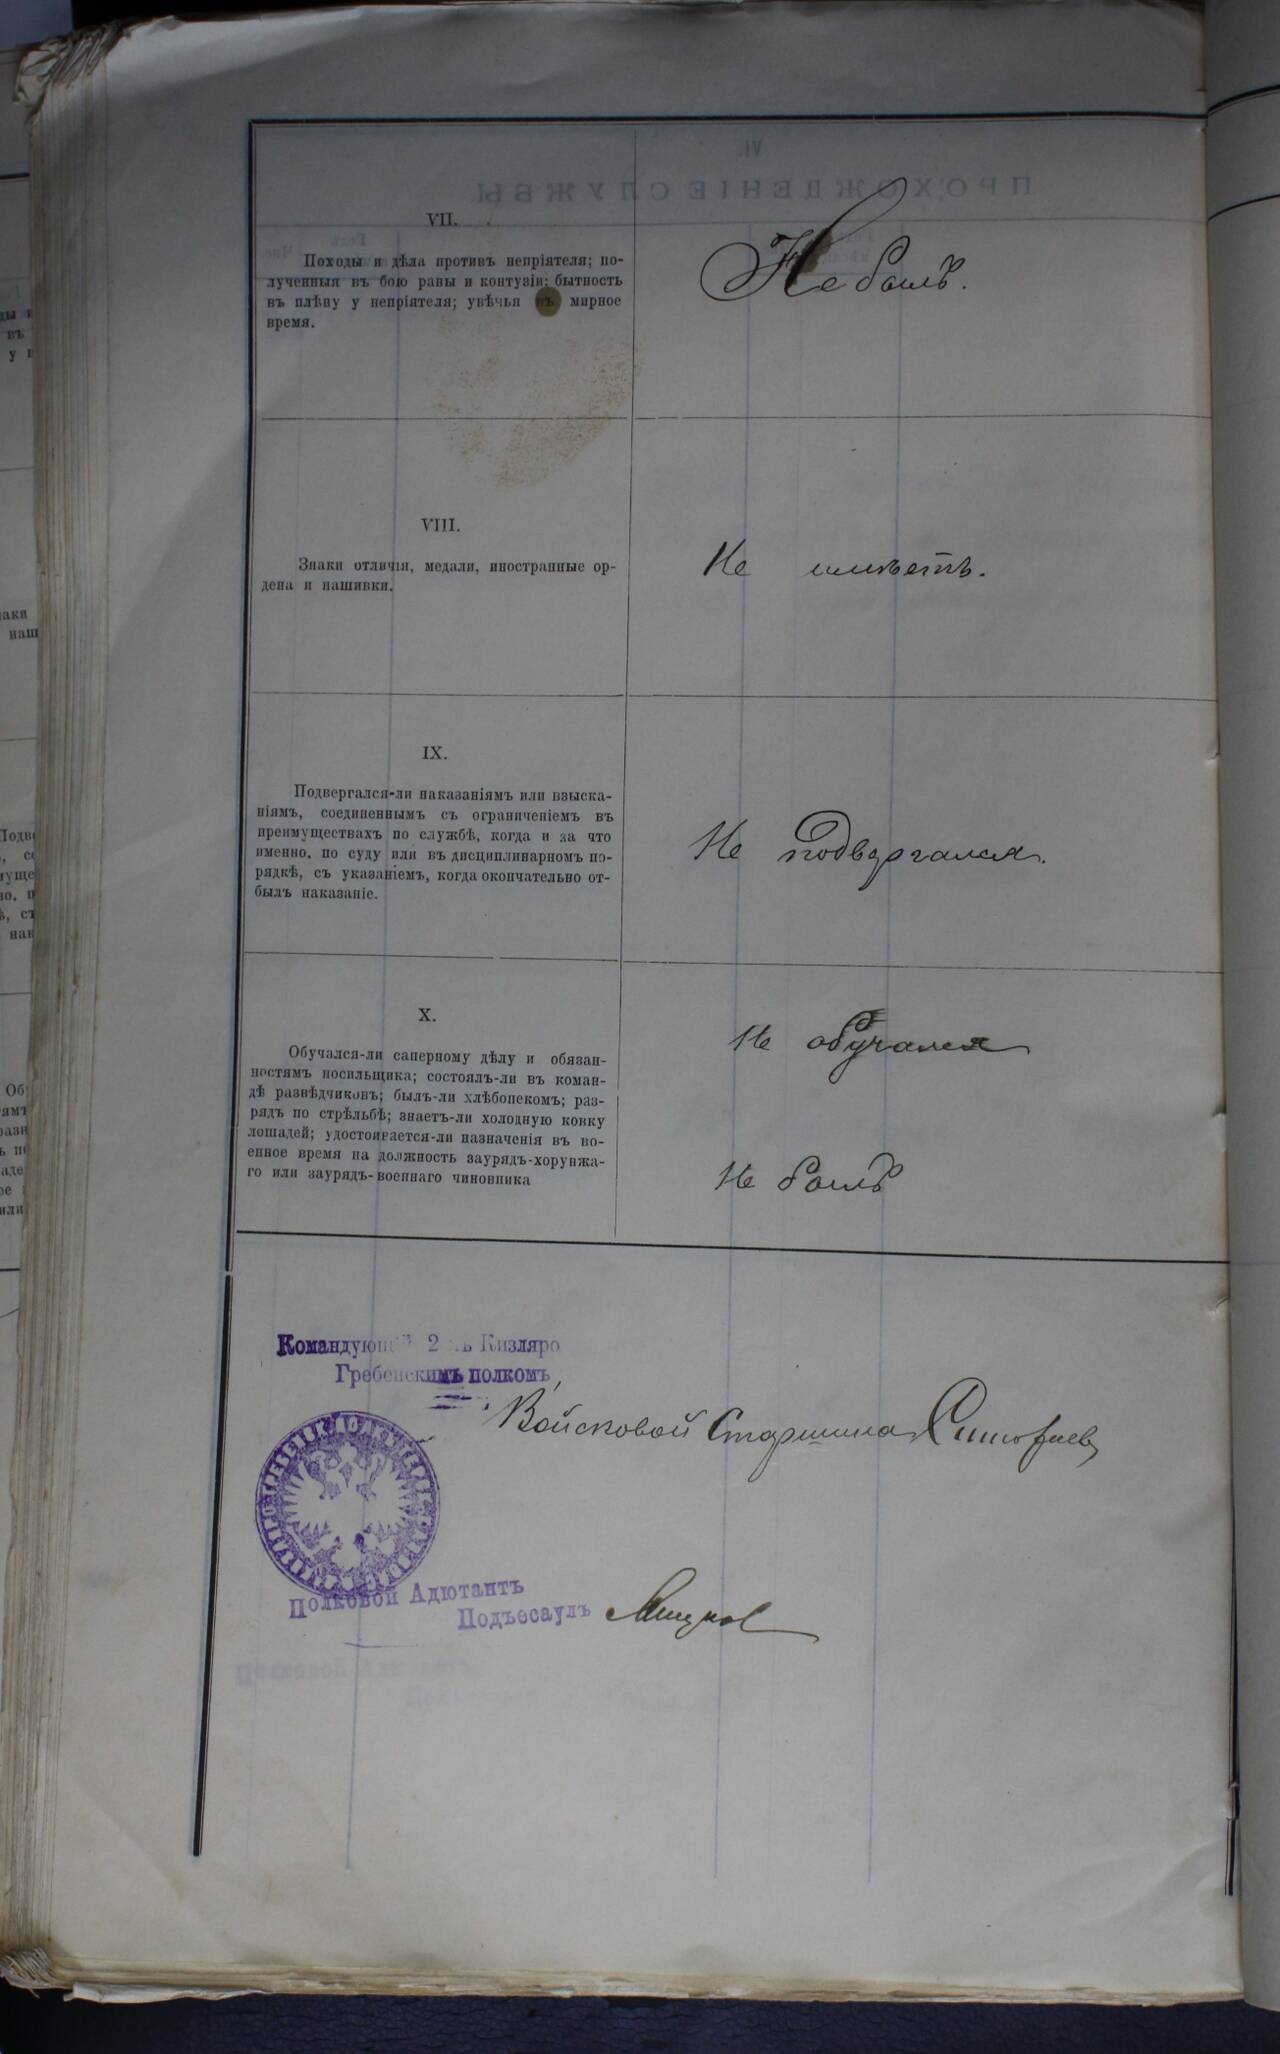 VII.
Походы и дѣла противъ непріятеля; по-
лученныя въ бою раны и контузіи; бытность
въ плѣну у непріятеля; увѣчья въ мирное
время.
Не былъ.
VIII.
Знаки отличія, медали, иностранные ор-
дена и нашивки.
Не имѣетъ.
IX.
Подвергался-ли наказаніямъ или взыска-
ніямъ, соединеннымъ съ ограниченіемъ въ
преимуществахъ по службѣ, когда и за что
именно, по суду или въ дисциплинарномъ по-
рядкѣ, съ указаніемъ, когда окончательно от-
былъ наказаніе.
Не подвергался.
X.
Обучался-ли саперному дѣлу и обязан-
ностямъ носильщика; состоялъ-ли въ коман-
дѣ развѣдчиковъ; былъ-ли хлѣбопекомъ; раз-
рядъ по стрѣльбѣ; знаетъ-ли холодную ковку
лошадей; удостоивается-ли назначенія въ во-
енное время на должность заурядъ-хорунжа-
го или заурядъ-военнаго чиновника
Не обучался
Не былъ
Командующій 2 Кизляро
Гребенскимъ полкомъ
Войсковой Старшина
Полковой Адютантъ
Подъесаулъ